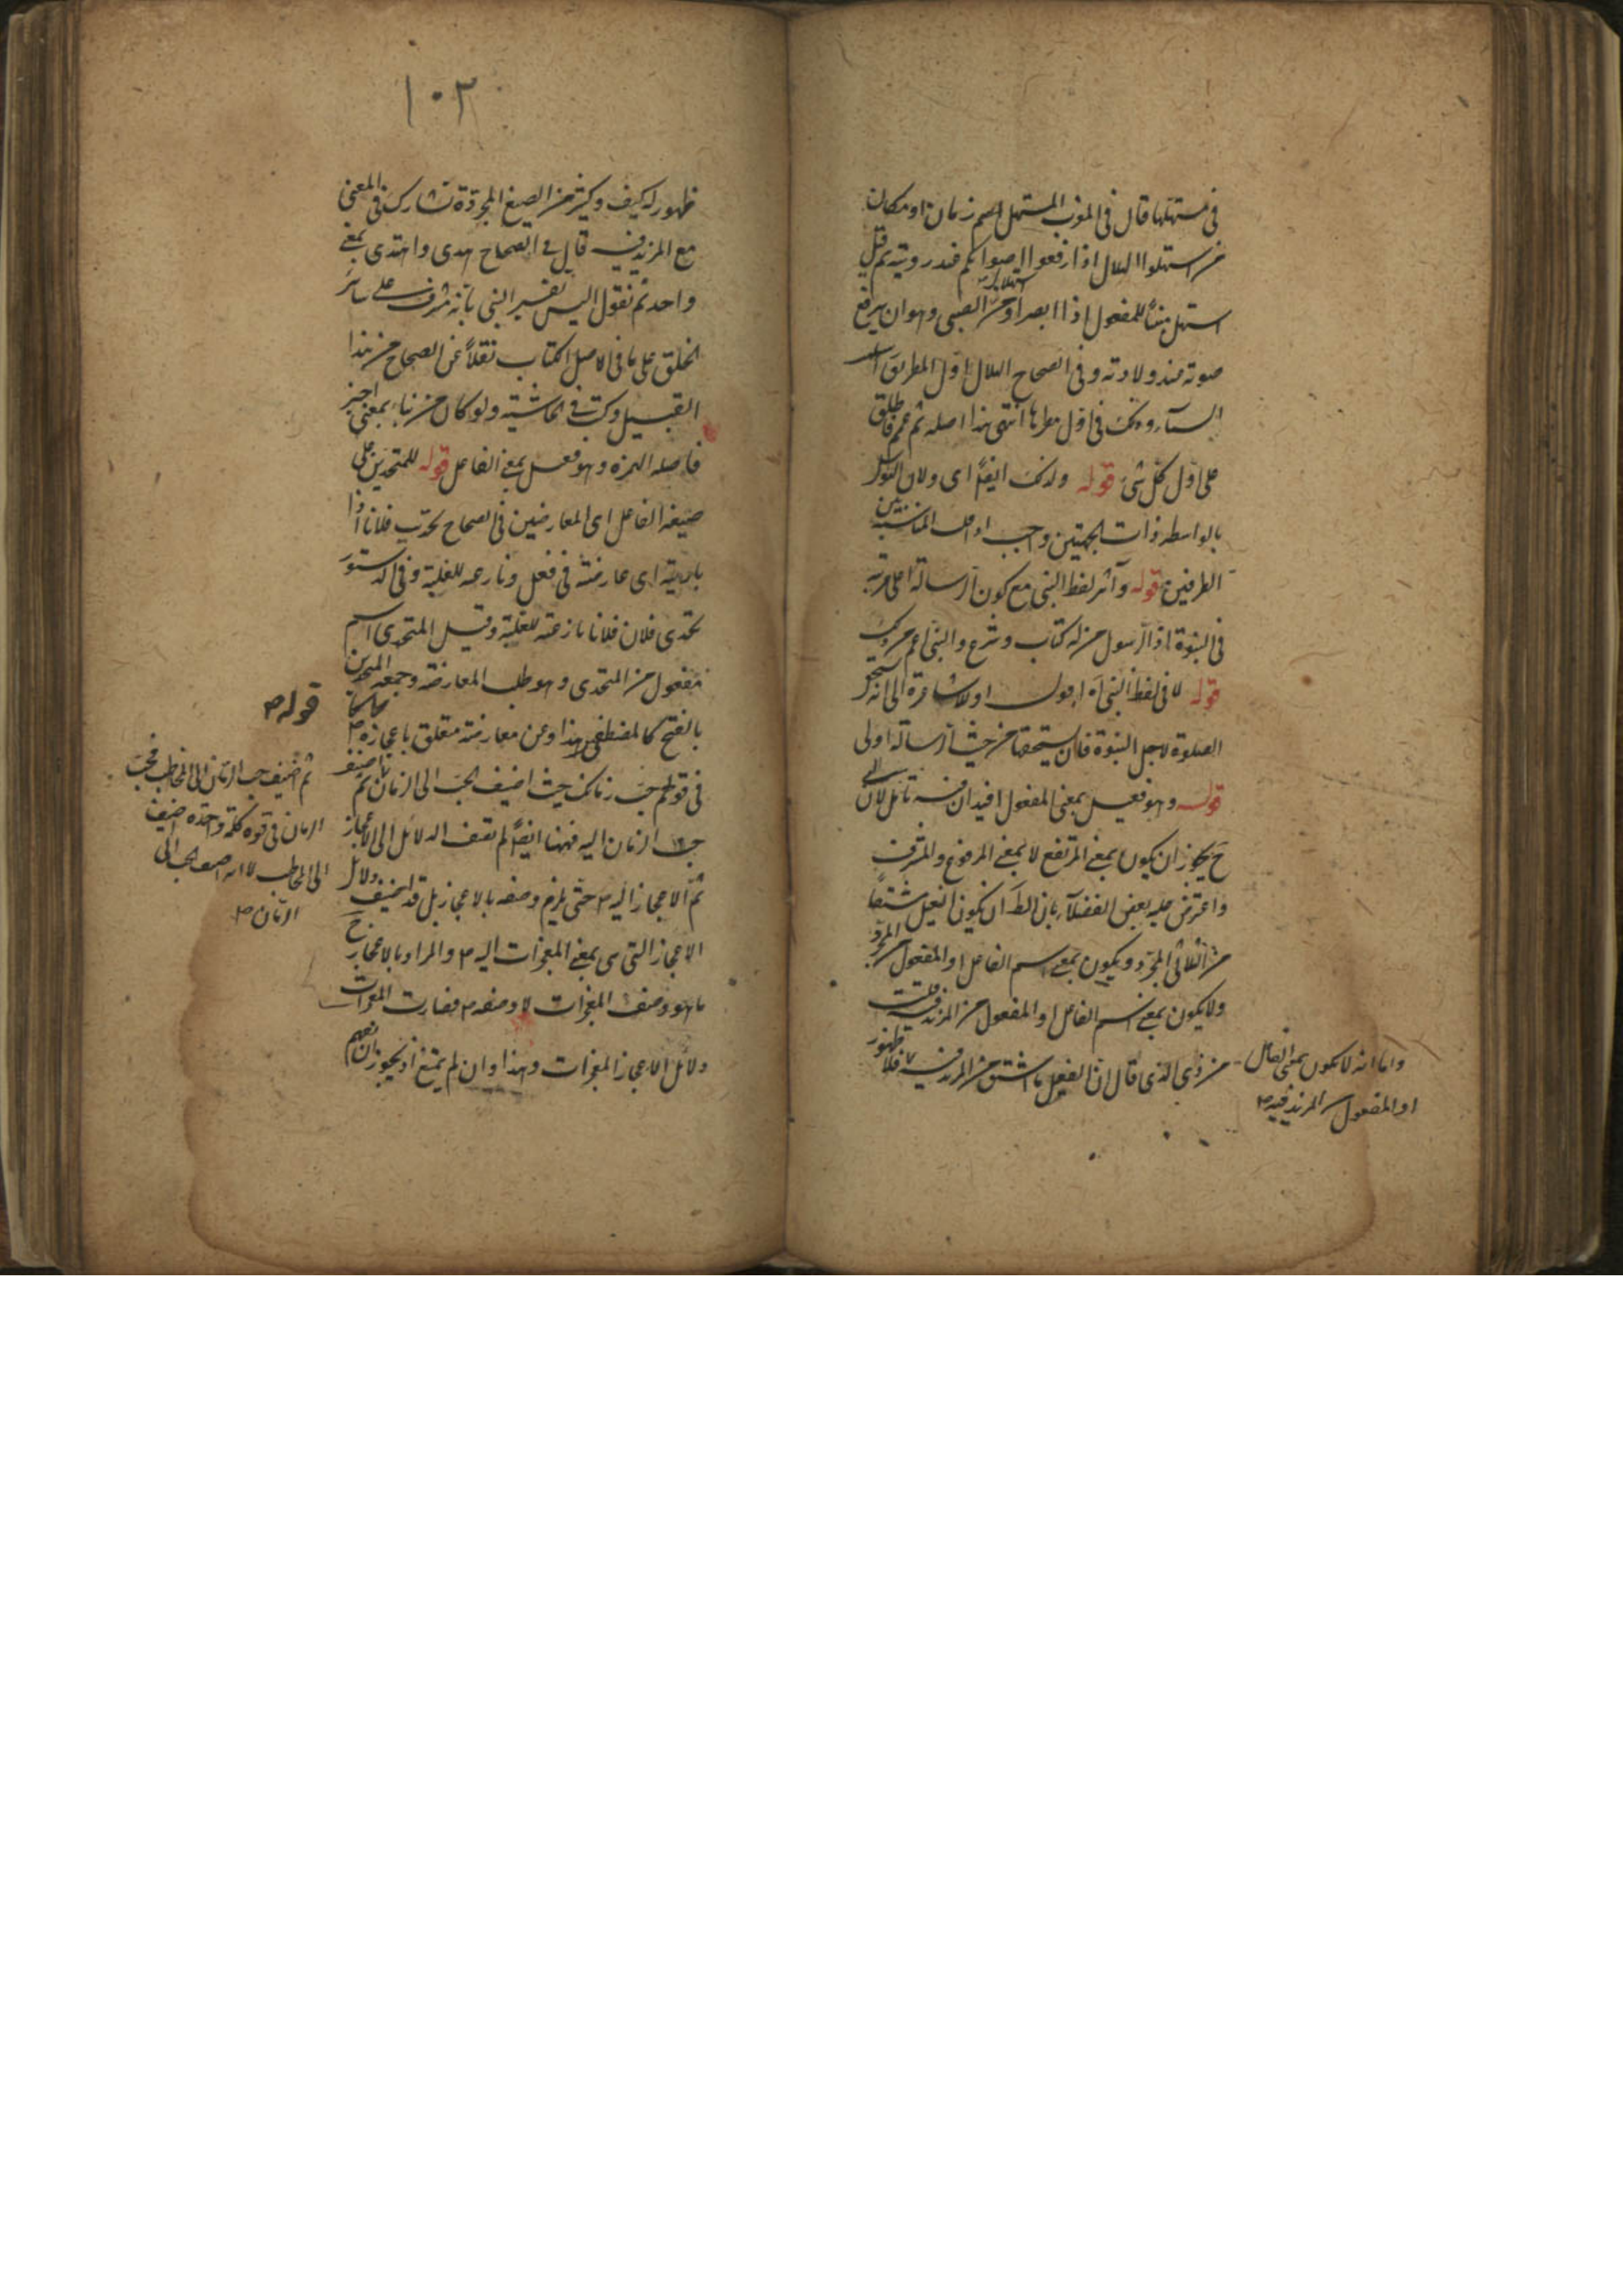 في مستهلها قال في المغرب المستهل اسم زمان او مكان
من استهلوا الهلال اذا رفعوا اصواتهم عند رويته ثم قيل
استهل مبنيا للمفعول اذا ابصر او من استهلال الصبي وهو ان يرفع
صوته عند ولادته وفي الصحاح الهلال اول المطر يق
السمآء وذلك في اول مطرها انتهى هذا اصله ثم عمم فاطلق
على اول كل شئ قوله ولذلك ايضا اى ولان التوسل
بالواسطه ذات الجهتين واجب المناسبة بين
الطرفين قوله وآثر لفظ النبي مع كون الرسالة اعلى مرتبه
في النبوة اذ الرسول من له كتاب وشرع والنبي اعم من ذلك
قوله لا في لفظ النبي اه اقول اولا اشارة الى انه يستحق
الصلوة لاجل النبوة فان يستحقها من حيث الرسالة اولى
قوله وهو فعيل بمعنى المفعول افيد ان فيه تامل لان
ح يجوز ان يكون بمعنى المرتفع لا بمعنى المرفوع والمشرف
واعترض عليه بعض الفضلآء بان الظ ان يكون الفعيل مشتقا
من الثلاثى المجرد ويكون بمعنى اسم الفاعل او المفعول من المجرد
ولا يكون بمعنى اسم الفاعل او المفعول من المزيد فيه قلت
من ذى الذى قال ان الفعيل ما اشتق من المزيد فيه فلا ظهور
واما انه لا يكون بمعنى الفاعل
او المفعول من المزيد فيه
١٠٢
ظهور له كيف وكثير من الصيغ المجردة تشارك في المعنى
مع المزيد فيه قال في الصحاح هدى واهتدى بمعنى
واحد ثم نقول اليس تفسير النبي بانه شرف على سائر
الخلق على ما في الاصل الكتاب نقلا عن الصحاح من هذا
القبيل وكتب في الحاشيته ولو كان من نباء بمعنى اخبر
فاصله الهمزه وهو فعيل بمعنى الفاعل قوله للمتحدين على
صيغه الفاعل اى المعارضين في الصحاح تحديت فلانا اذا
باريته اى عارضته في فعل ونازعته للغلبة وفي الدستور
تحدى فلان فلانا نازعته للغلبة وقيل المتحدى اسم
مفعول من التحدى وهو طلب المعارضة وجمعه المتحدين
بالفتح كالمصطفين هذا وعن معارضته متعلق باعجازه
قوله
في قولهم حب رمانك حيث اضيف الحب الى الرمان ثم اضيف
حب الرمان اليه فههنا ايضا لم تضف الدلائل الى الاعجاز
ثم الاعجاز اليه حتى يلزم وصفه بالاعجاز بل قد اضيف دلائل
الاعجاز التى هى بمعنى المعجزات اليه والمراد بالاعجاز ح
ما هو وصف المعجزات لا وصفه فصارت المعجزات
دلائل الاعجاز المعجزات وهذا وان لم يمتنع اذ يجوز ان
ثم اضيف حب الرمان الى المخاطب فحب
الرمان في قوه كلمة واحدة اضيف
الى المخاطب لا انه اضيف الحب الى
الرمان